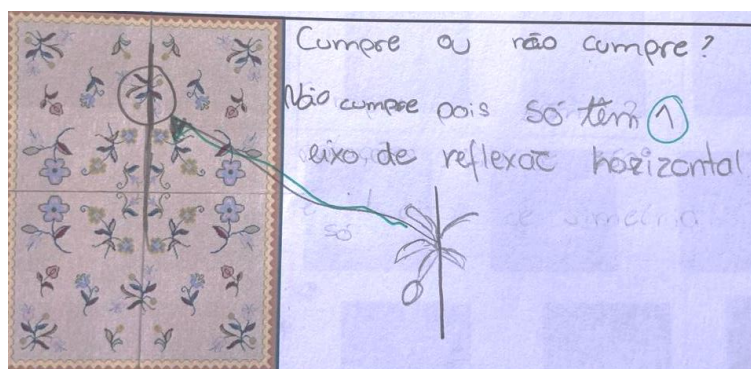 Cumpre ou não cumpre?
Não cumpre pois só têm 1
eixo de reflexão horizontal
só de simetria